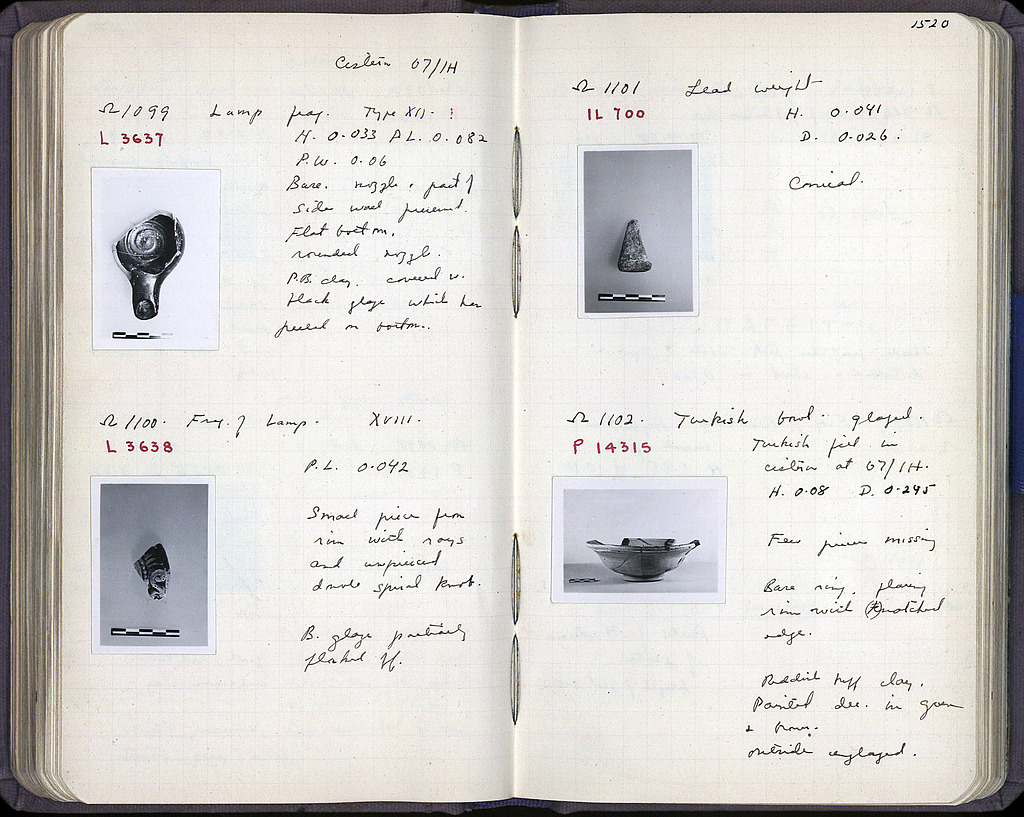 Cistern 67/ΙΗ
Ω 1099 Lamp frag. Type XII !
L 3637
H. 0.033 P.L. 0.082
P.W. 0.06
Base. nozzle, part of
side wall preserved.
Flat bottom.
rounded nozzle.
P.B. clay. covered w.
black glaze which has
peeled on bottom.
Ω 1100. Frag. of Lamp. XVIII.
L 3638
P.L. 0.042
Small piece from
rim with rays
and unpierced
double spiral knob.
B. glaze partially
flaked off.
1520
Ω 1101 Lead weight
IL 700
H. 0.041
D. 0.026.
Conical.
Ω 1102. Turkish bowl. glazed.
P 14315
Turkish fill in
cistern at 67/ΙΗ.
H. 0.08 D. 0.245
Few pieces missing
Base ring, flaring
rim with notched
edge.
Reddish buff clay.
Painted dec. in green
& brown.
outside unglazed.